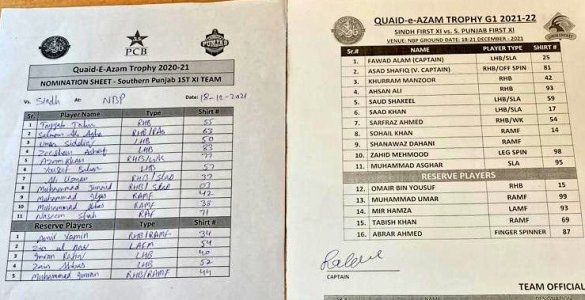 PCB
Quaid-E-Azam Trophy 2020-21
NOMINATION SHEET - Southern Punjab 1ST XI TEAM
Vs. Sindh At: NBP Date: 18-12-2021
Sr. Player Name Type Shirt #
1 RHB 55
2 Salman Ali Agha RHB/RAs 63
3 Umar Siddiq LHB 50
4 Zeeshan Ashraf LHB 83
5 Azam Khan RHB/WK 77
6 LHB 57
7 RHB/ 37
8 Muhammad RHB/ 07
9 Muhammad RAMF 42
10 Muhammad Abbas RAMF 38
11 Naseem Shah RAF 71
Reserve Players Type Shirt #
1 Yamin RHB/RAMF 34
2 Zia ul Haq LAFM 54
3 Imran LHB 40
4 Zain Abbas LHB 52
5 Muhammad Imran RHB/RAMF 44
QUAID-e-AZAM TROPHY G1 2021-22
SINDH FIRST XI vs. S. PUNJAB FIRST XI
VENUE: NBP GROUND DATE: 18-21 DECEMBER - 2021
Sr.# NAME PLAYER TYPE SHIRT #
1. FAWAD ALAM (CAPTAIN) LHB/SLA 25
2. ASAD SHAFIQ (V. CAPTAIN) RHB/OFF SPIN 81
3. KHURRAM MANZOOR RHB 42
4. AHSAN ALI RHB 93
5. SAUD SHAKEEL LHB/SLA 59
6. SAAD KHAN LHB/SLA 17
7. SARFRAZ AHMED RHB/WK 54
8. SOHAIL KHAN RAMF 14
9. SHANAWAZ DAHANI RAMF
10. ZAHID MEHMOOD LEG SPIN 98
11. MUHAMMAD ASGHAR SLA 95
RESERVE PLAYERS
12. OMAIR BIN YOUSUF RHB 15
13. MUHAMMAD UMAR RAMF 99
14. MIR HAMZA LAMF 93
15. TABISH KHAN RAMF 69
16. ABRAR AHMED FINGER SPINNER 87
CAPTAIN
TEAM OFFICIAL